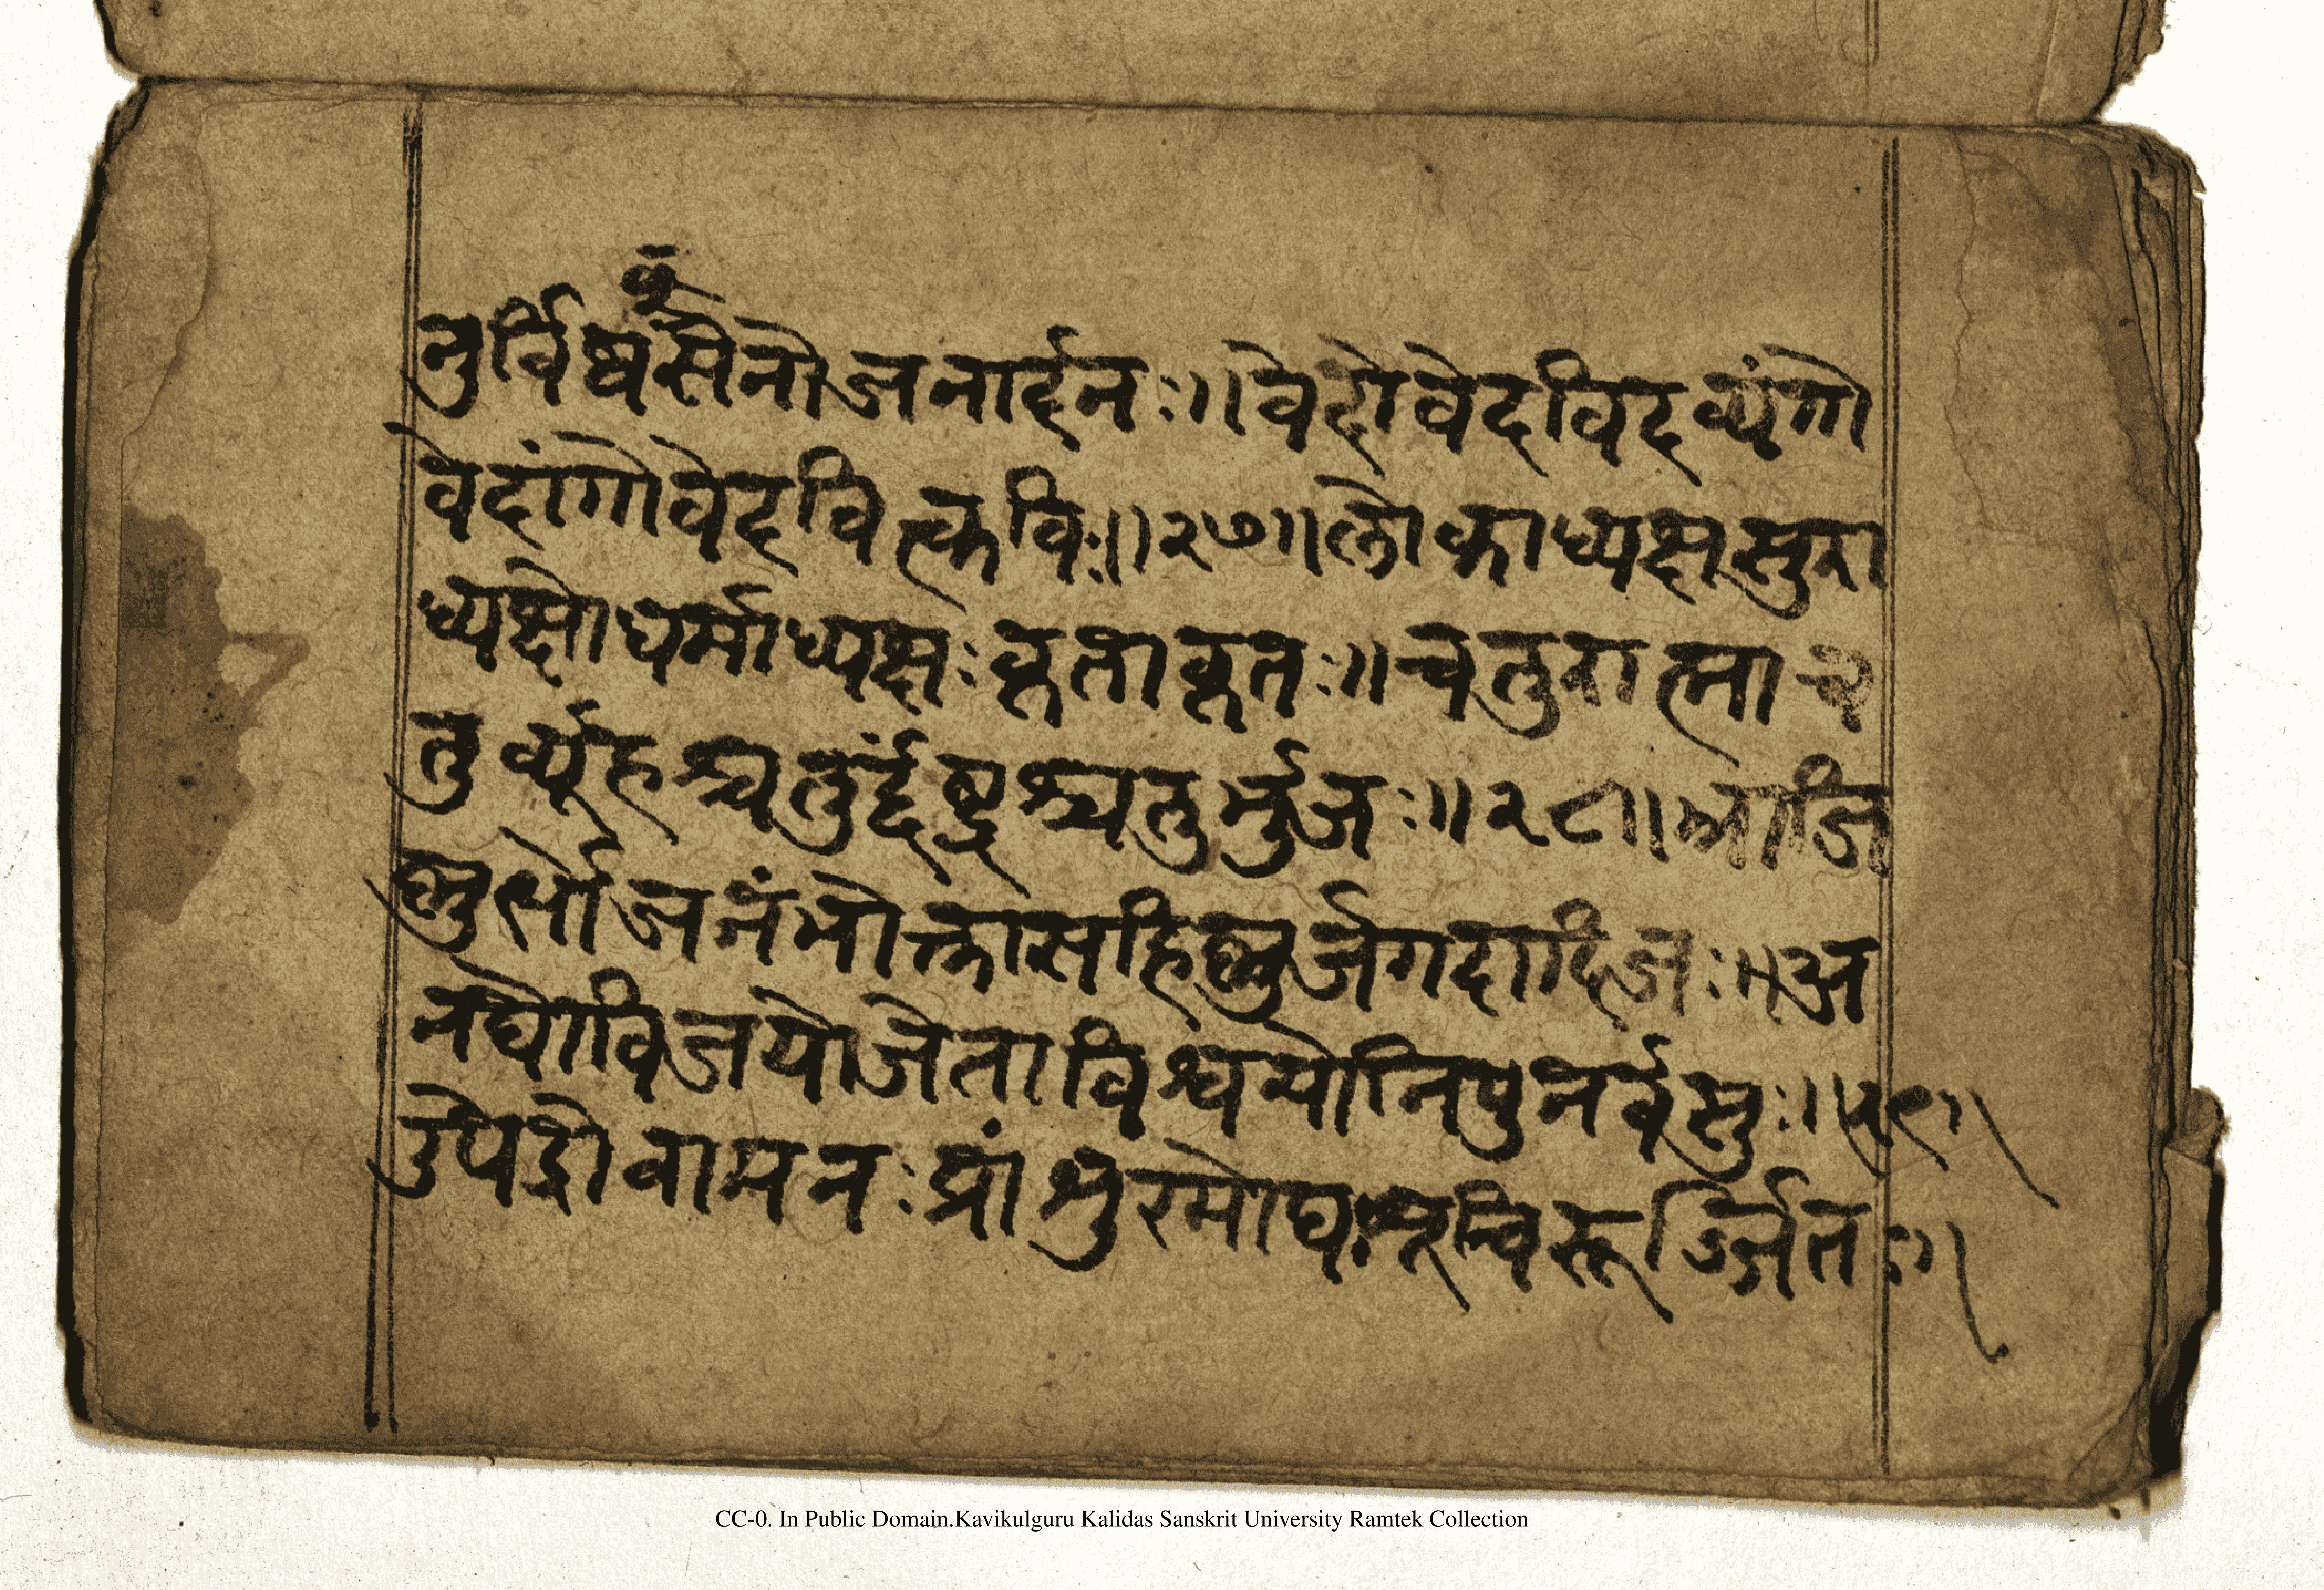 क्
नुर्विष्वसेनोजनार्दनः॥वेदोवेदविदव्यंगो
वेदांगोवेदवित्कविः॥२७॥लोकाध्यक्षसुरा
ध्यक्षोधर्माध्यक्षःकृताकृतः॥चतुरात्माच
तुर्व्यूहश्चतुर्द्दंष्ट्रश्चतुर्भुजः॥२८॥भ्राजि
ष्णुर्भोजनंभोक्तासहिष्णुर्जगदादिजः॥अ
नघोविजयोजेताविश्वयोनिपुनर्वसुः॥२९॥
उपेद्रोवामनःप्रांशुरमोघःशूचिरूर्ज्जितः॥
CC-0. In Public Domain.Kavikulguru Kalidas Sanskrit University Ramtek Collection